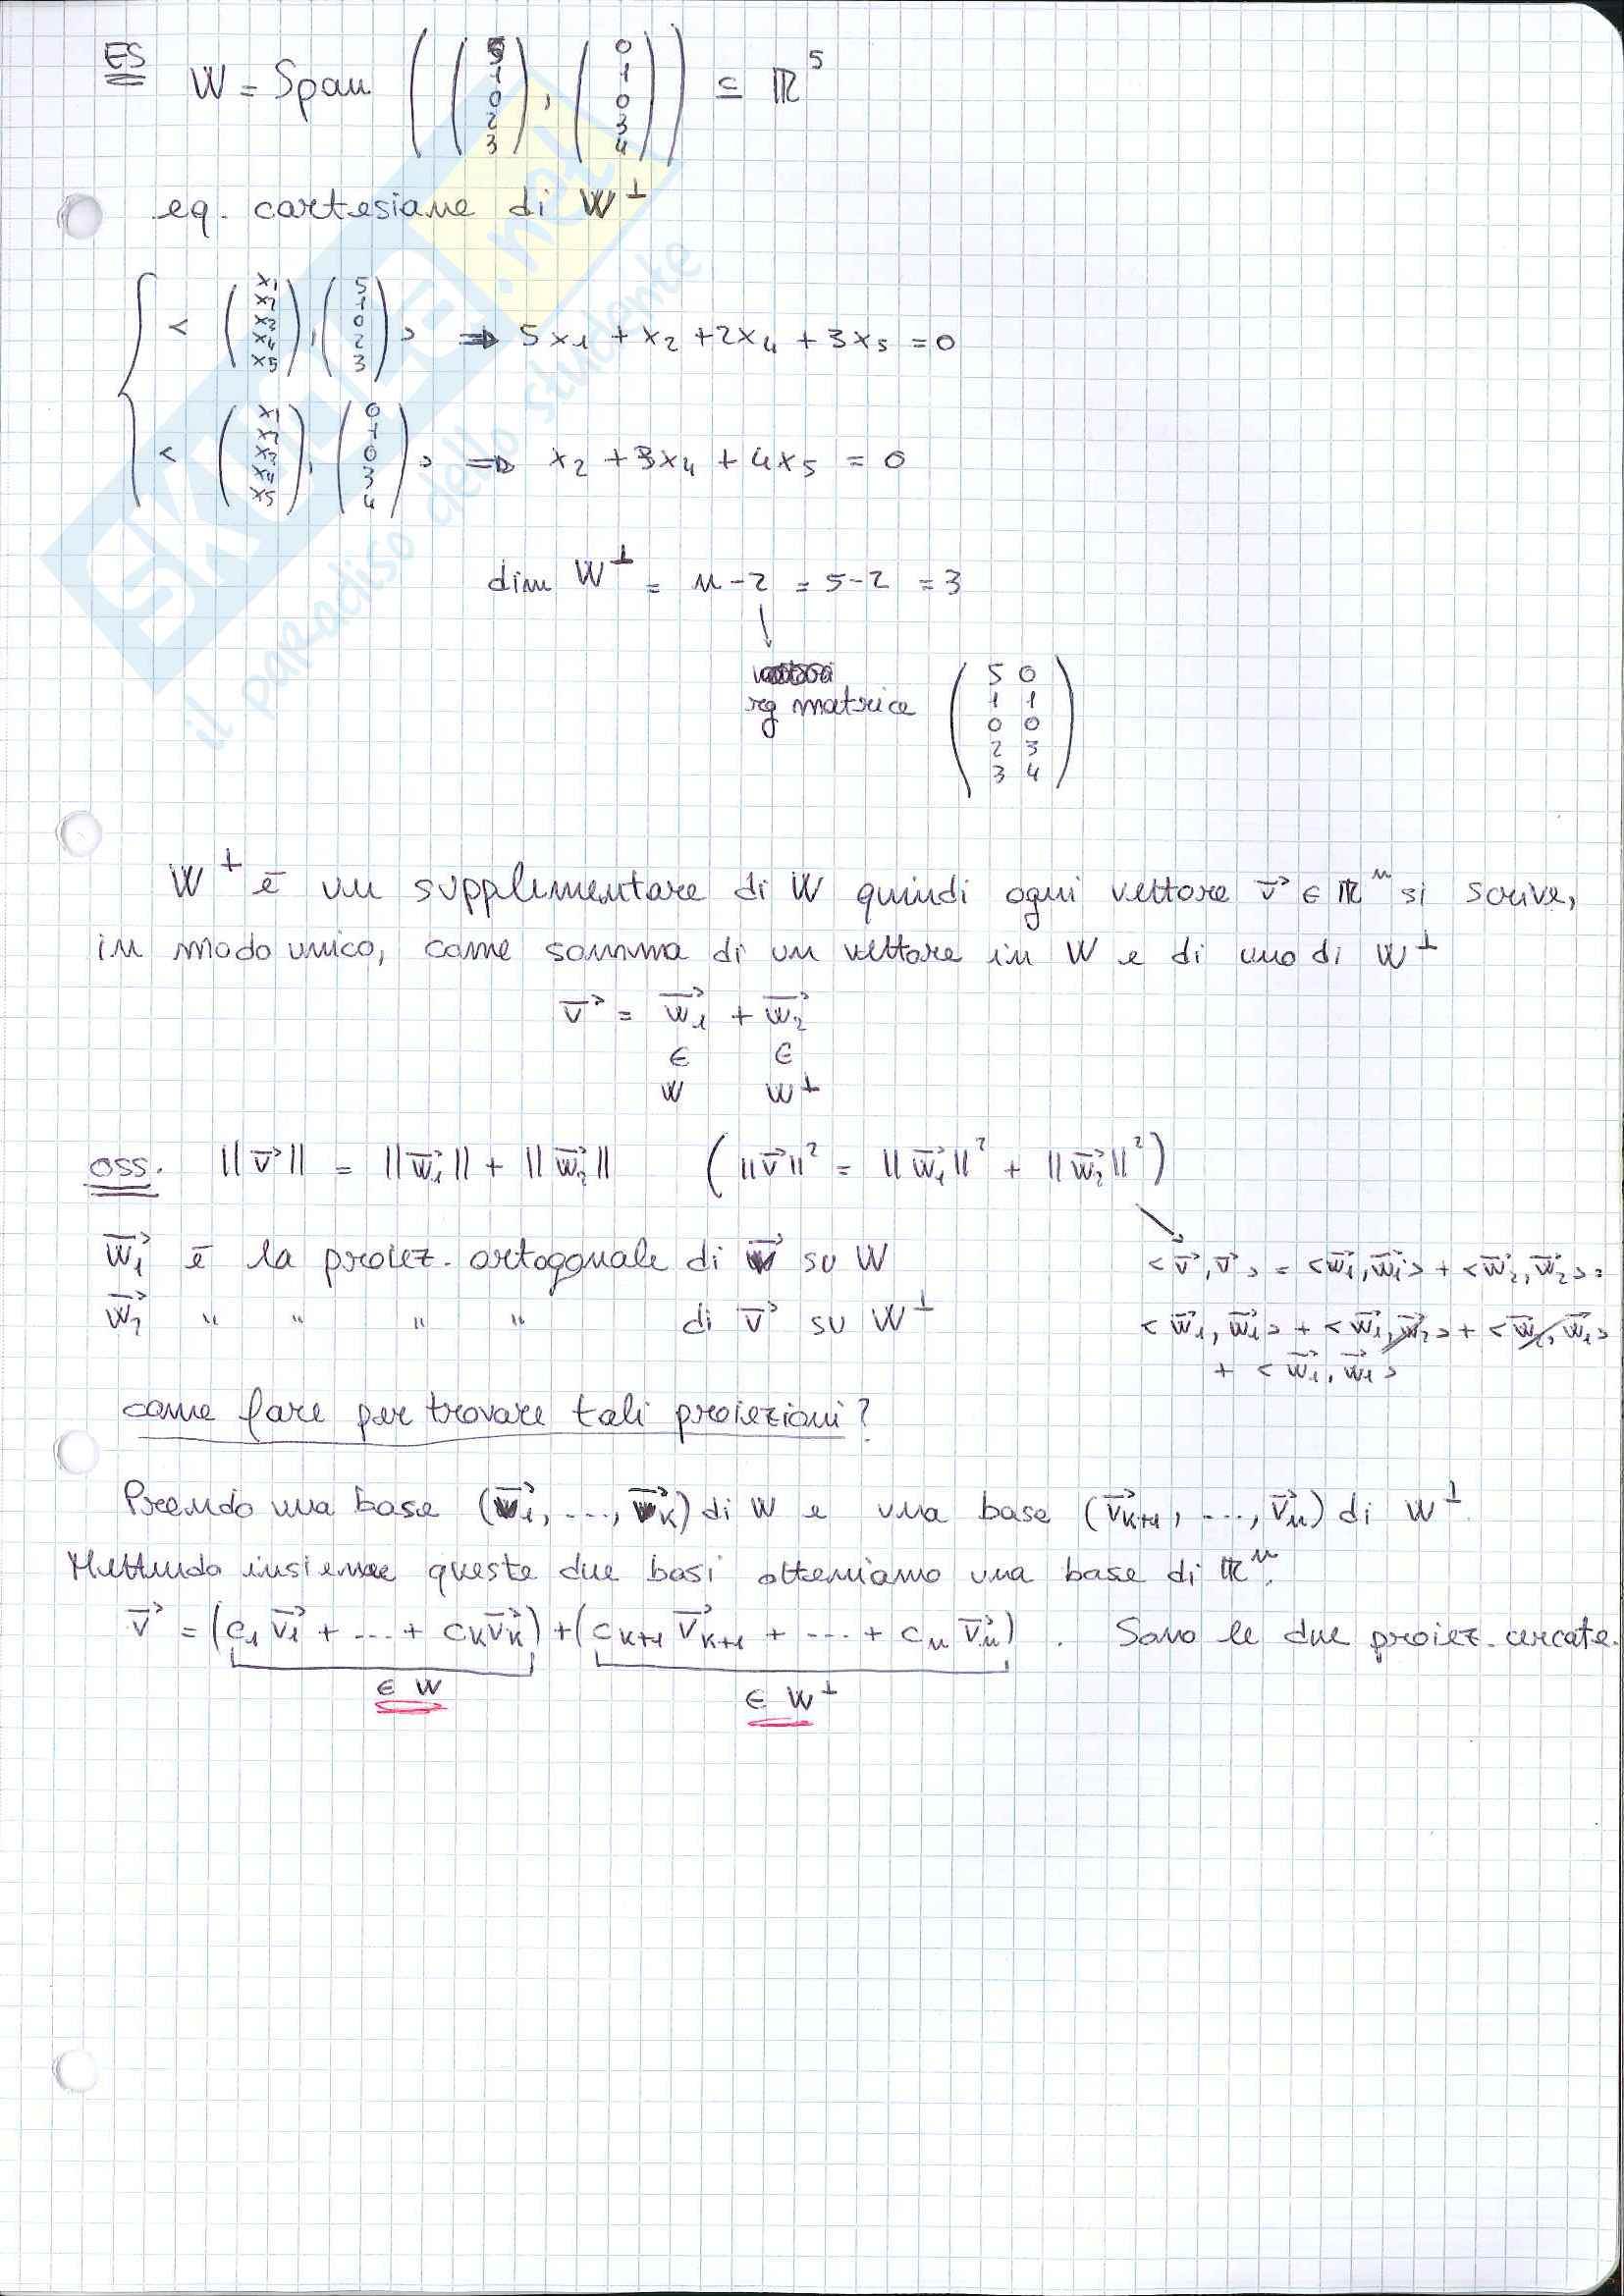 ES W = Span ( (5 1 0 2 3), (0 1 0 3 4) ) ⊆ ℝ⁵
eq. cartesiane di W⊥
< (x₁ x₂ x₃ x₄ x₅), (5 1 0 2 3) > ⇒ 5x₁ + x₂ + 2x₄ + 3x₅ = 0
< (x₁ x₂ x₃ x₄ x₅), (0 1 0 3 4) > ⇒ x₂ + 3x₄ + 4x₅ = 0
dim W⊥ = n - 2 = 5 - 2 = 3
↓
rg matrice (5 0
1 1
0 0
2 3
3 4)
W⊥ è un supplementare di W quindi ogni vettore v⃗ ∈ ℝⁿ si scrive,
in modo unico, come somma di un vettore in W e di uno di W⊥
v⃗ = w⃗₁ + w⃗₂
∈ ∈
W W⊥
oss. ||v⃗|| = ||w⃗₁|| + ||w⃗₂|| (||v⃗||² = ||w⃗₁||² + ||w⃗₂||²)
w⃗₁ è la proiez. ortogonale di v⃗ su W
w⃗₂ " " " " di v⃗ su W⊥
<v⃗, v⃗> = <w⃗₁, w⃗₁> + <w⃗₂, w⃗₂> =
<w⃗₁, w⃗₁> + <w⃗₁, w⃗₂> + <w⃗₂, w⃗₁>
+ <w⃗₁, w⃗₁>
come fare per trovare tali proiezioni?
Prendo una base (v⃗₁, ..., v⃗k) di W e una base (v⃗k+1, ..., v⃗n) di W⊥.
Mettendo insieme queste due basi otteniamo una base di ℝⁿ.
v⃗ = (c₁v⃗₁ + ... + ckv⃗k) + (ck+1 v⃗k+1 + ... + cn v⃗n). Sono le due proiez. cercate.
∈ W ∈ W⊥
SKUOLA.net
il paradiso dello studente